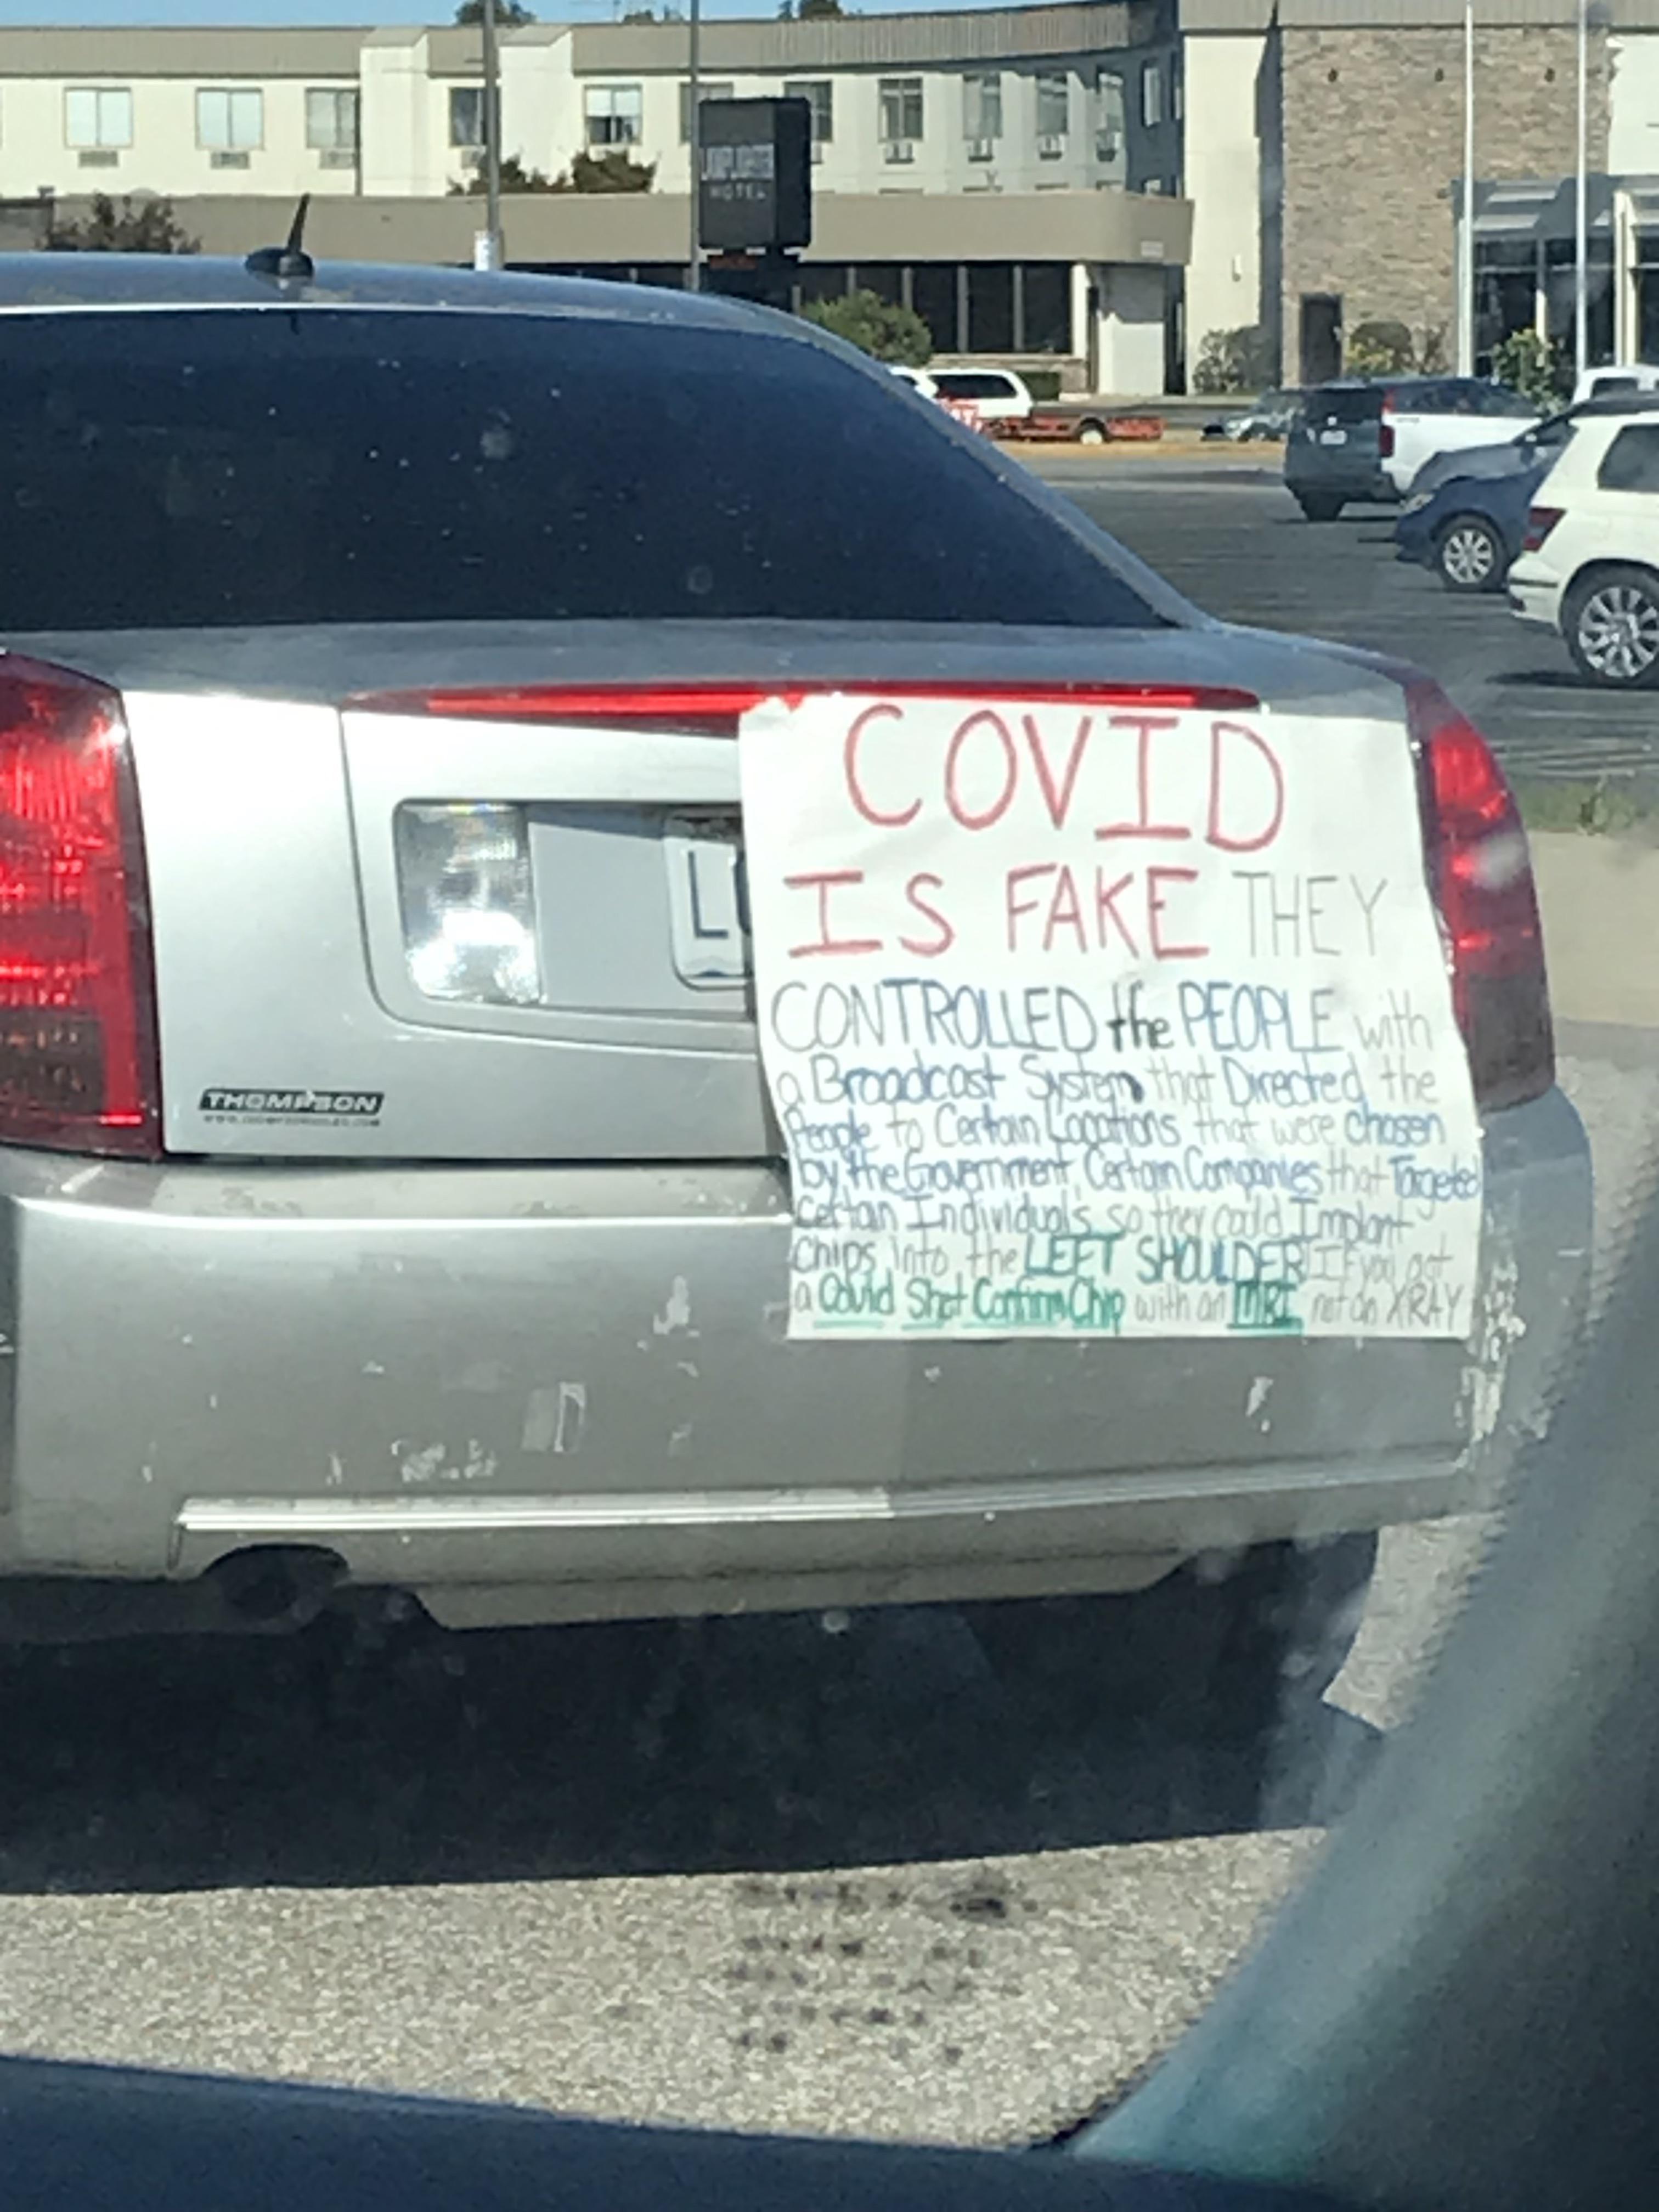 HOTEL
COVID
IS FAKE THEY
CONTROLLED the PEOPLE with
a Broadcast System that Directed the
People to Certain Locations that were chosen
by the Government Certain Companies that Targeted
Certain Individuals so they could Implant
Chips into the LEFT SHOULDER If you got
a Covid Shot Confirm Chip with an MRI not an XRAY
THOMPSON